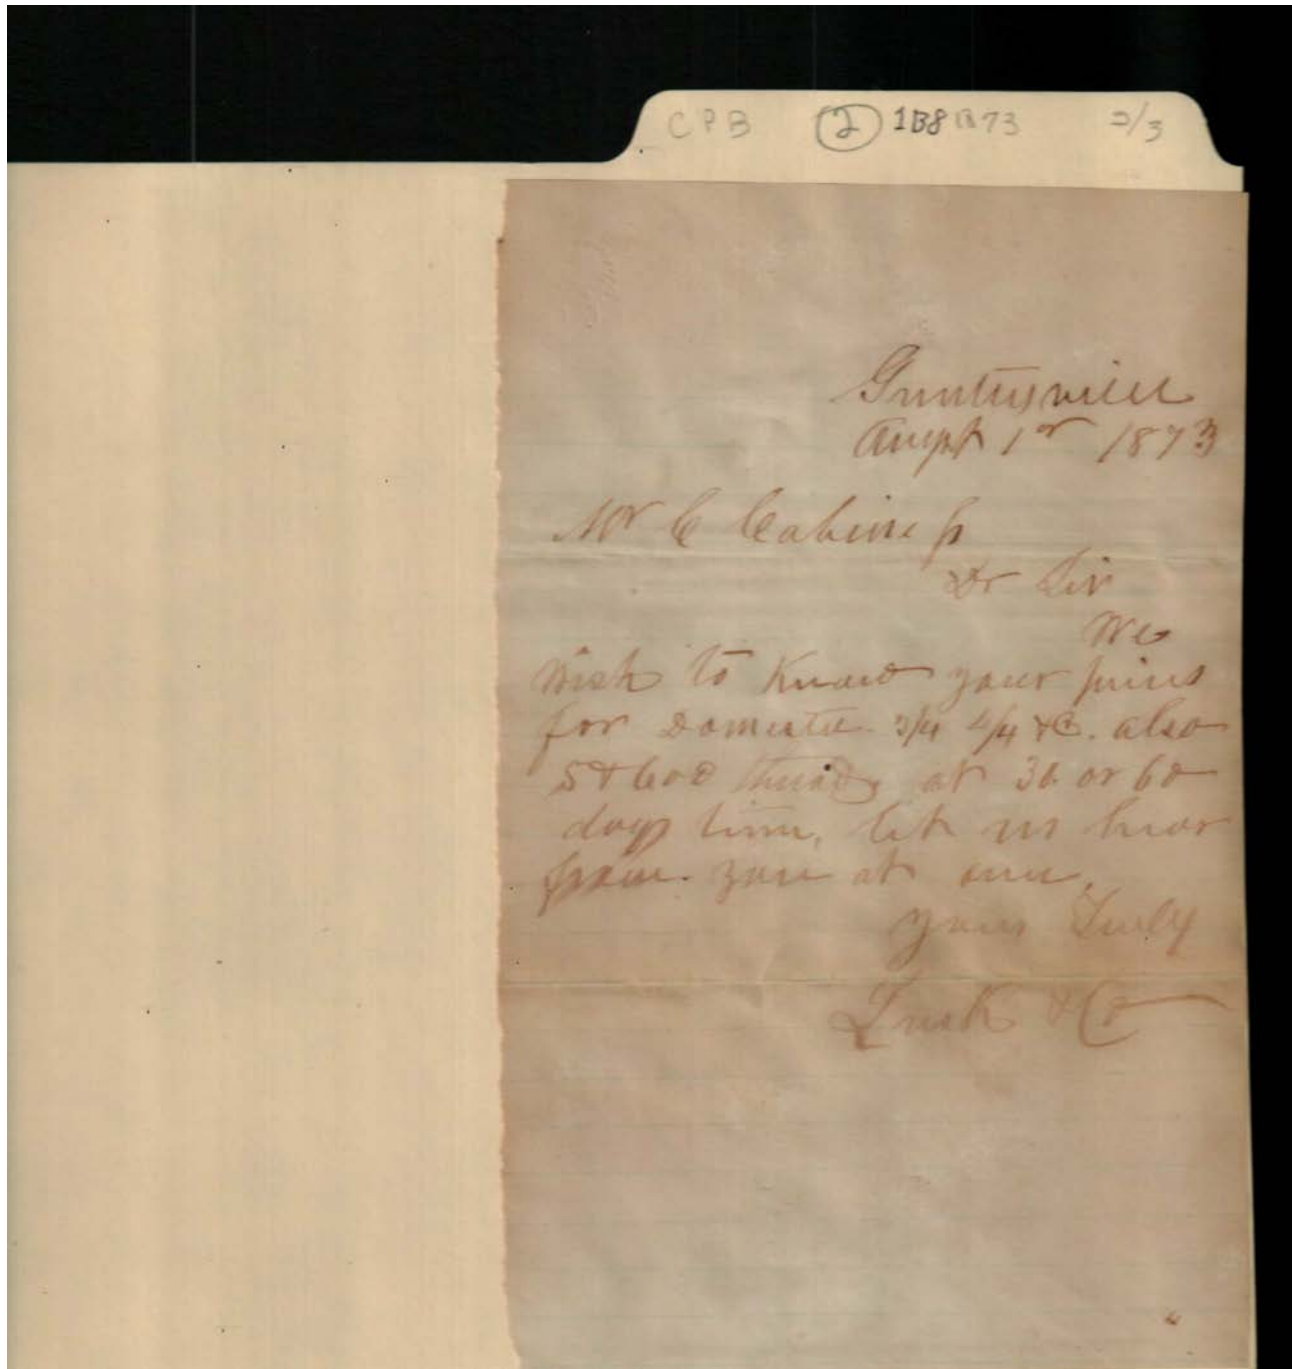 CPB (2) 1B81873 2/3
Guntersville
Augst 1st 1873
Mr C Cabiness
Dr Sir
We
Wish to Know your prices
for Domestic 3/4 4/4 &C. also
5 & 600 thread, at 30 or 60
days time, let us hear
from you at once,
yours Truly
Lusk & Co